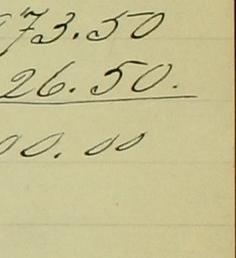 973.50
26.50.
00.00